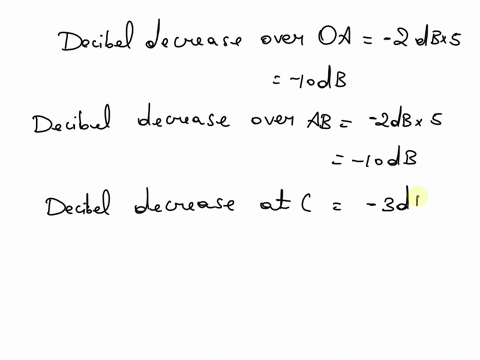 Decibel decrease over OA = -2 dB×5
= -10dB
Decibel decrease over AB = -2dB× 5
= -10dB
Decibel decrease at C = -3d